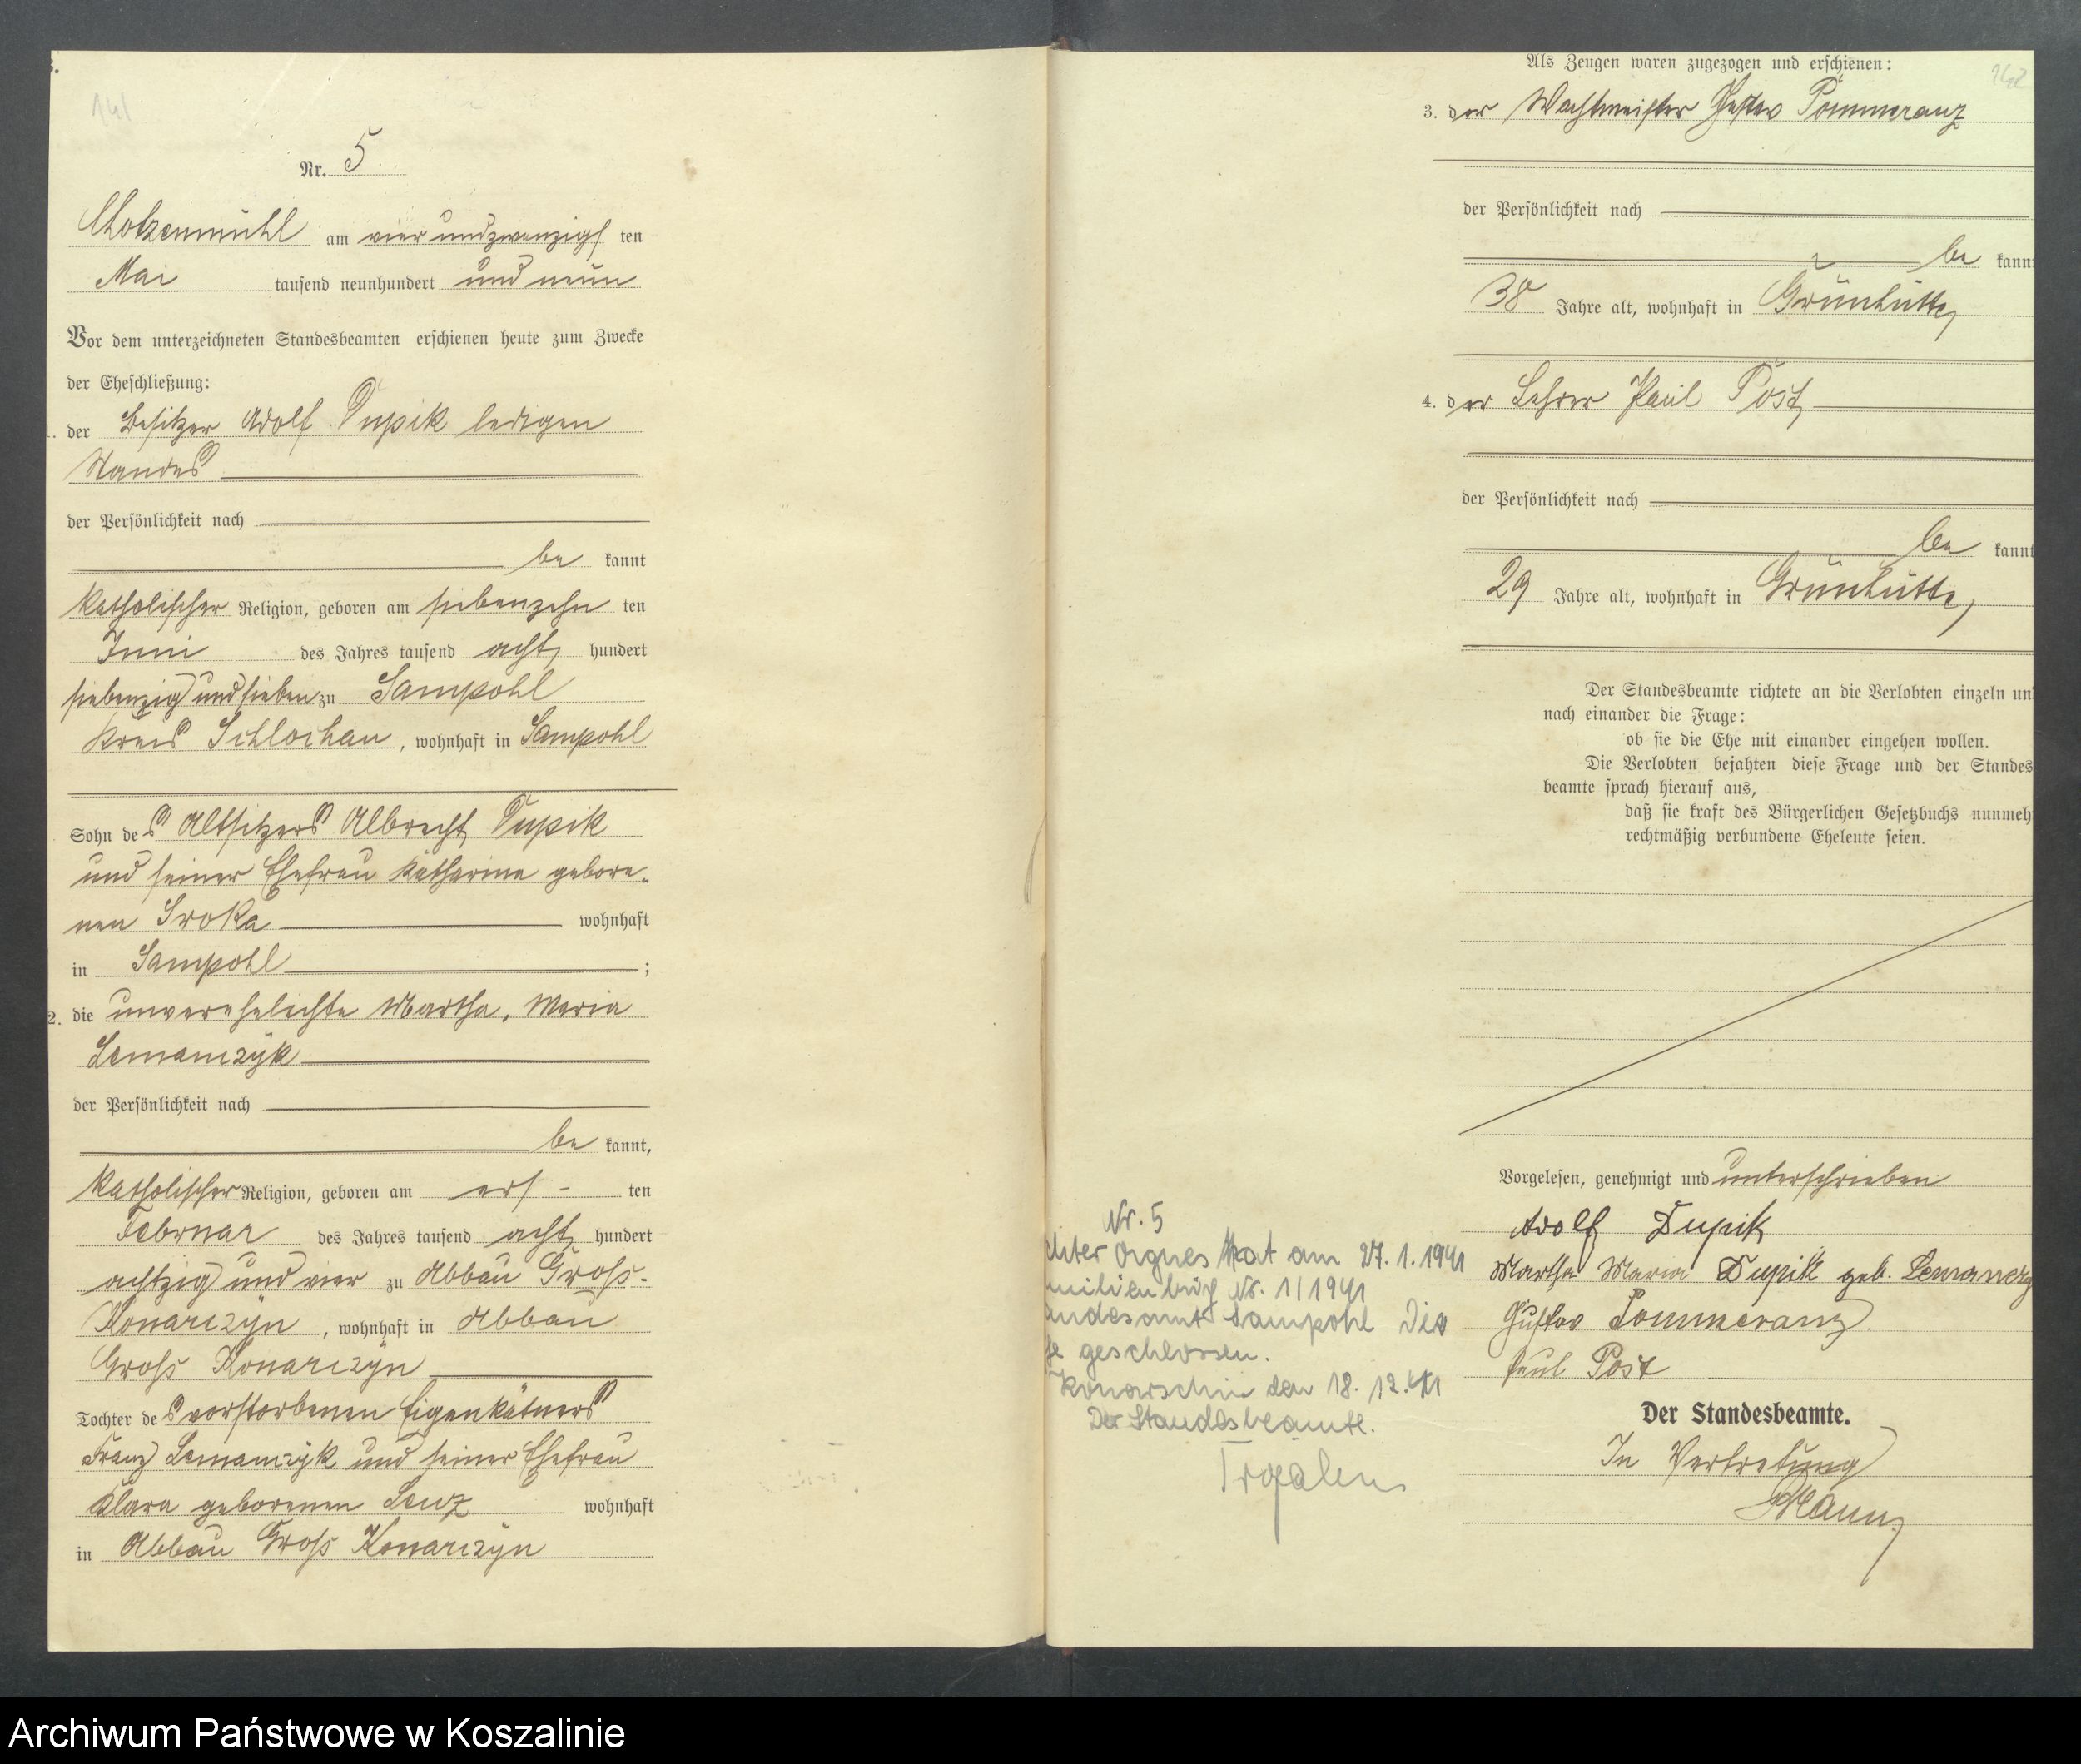 141
Nr. 5
am vier und zwanzigsten
Mai tausend neunhundert und neun
Vor dem unterzeichneten Standesbeamten erschienen heute zum Zwecke
der Eheschließung:
1. der Besitzer Adolf Dupik ledigen
Standes
der Persönlichkeit nach
be kannt
katholischer Religion, geboren am siebenzehn ten
Juni des Jahres tausend acht hundert
siebenzig und sieben zu Sampohl
Kreis Schlochau, wohnhaft in Sampohl
Sohn des Altsitzers Albrecht Dupik
und seiner Ehefrau Katharina gebore-
nen Sroka wohnhaft
in Sampohl ;
2. die unverehelichte Martha, Maria
Lemanczyk
der Persönlichkeit nach
be kannt,
katholischer Religion, geboren am ers- ten
Februar des Jahres tausend acht hundert
achtzig und vier zu Abbau Gross-
Konarczyn, wohnhaft in Abbau
Gross Konarczyn
Tochter des verstorbenen Eigenkätners
Franz Lemanczyk und seiner Ehefrau
Klara geborenen Lenz wohnhaft
in Abbau Gross Konarczyn
142
Als Zeugen waren zugezogen und erschienen:
3. der Wachtmeister Gustav Pommeranz
der Persönlichkeit nach
be kannt
38 Jahre alt, wohnhaft in Grünhütte
4. der Lehrer Paul Post
der Persönlichkeit nach
be kannt
29 Jahre alt, wohnhaft in Grünhütte
Der Standesbeamte richtete an die Verlobten einzeln un
nach einander die Frage:
ob sie die Ehe mit einander eingehen wollen.
Die Verlobten bejahten diese Frage und der Standes
beamte sprach hierauf aus,
daß sie kraft des Bürgerlichen Gesetzbuchs nunmeh
rechtmäßig verbundene Eheleute seien.
Vorgelesen, genehmigt und unterschrieben
Adolf Dupik
Martha Maria Dupik geb. Lemanczy
Gustav Pommeranz
Paul Post
Der Standesbeamte.
In Vertretung
Nr. 5
chter Agnes hat am 27. 1. 1941
milienbuch Nr. 1/1941
andesamt Sampohl Die
he geschlossen.
Konarschin den 18. 12. 41
Der Standesbeamte.
Archiwum Państwowe w Koszalinie